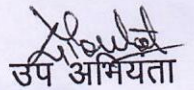 उप अभियंता